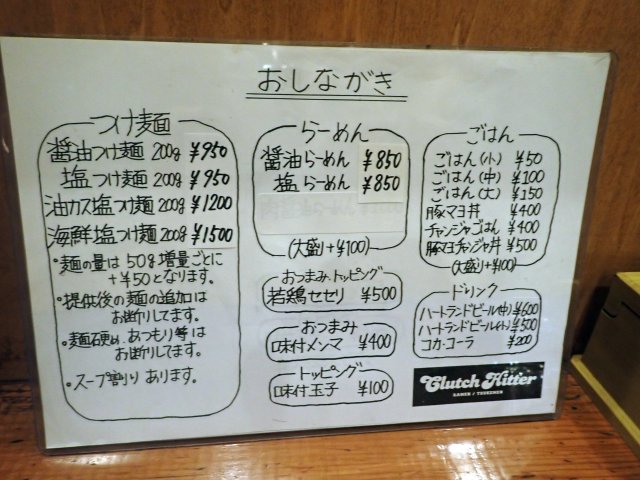 おしながき
つけ麺
醤油つけ麺 200g ¥950
塩つけ麺 200g ¥950
油カス塩つけ麺 200g ¥1200
海鮮塩つけ麺 200g ¥1500
・麺の量は50g増量ごとに
+¥50となります。
・提供後の麺の追加は
お断りしてます。
・麺硬め、あつもり等は
お断りしてます。
・スープ割りあります。
らーめん
醤油らーめん ¥850
塩らーめん ¥850
(大盛り+¥100)
おつまみ、トッピング
若鶏セセリ ¥500
おつまみ
味付メンマ ¥400
トッピング
味付玉子 ¥100
ごはん
ごはん(小) ¥50
ごはん(中) ¥100
ごはん(大) ¥150
豚マヨ丼 ¥400
チャンジャごはん ¥400
豚マヨチャンジャ丼 ¥500
(大盛り+¥100)
ドリンク
ハートランドビール(中) ¥600
ハートランドビール(小) ¥500
コカ・コーラ ¥200
Clutch Hitter
RAMEN / TSUKEMEN